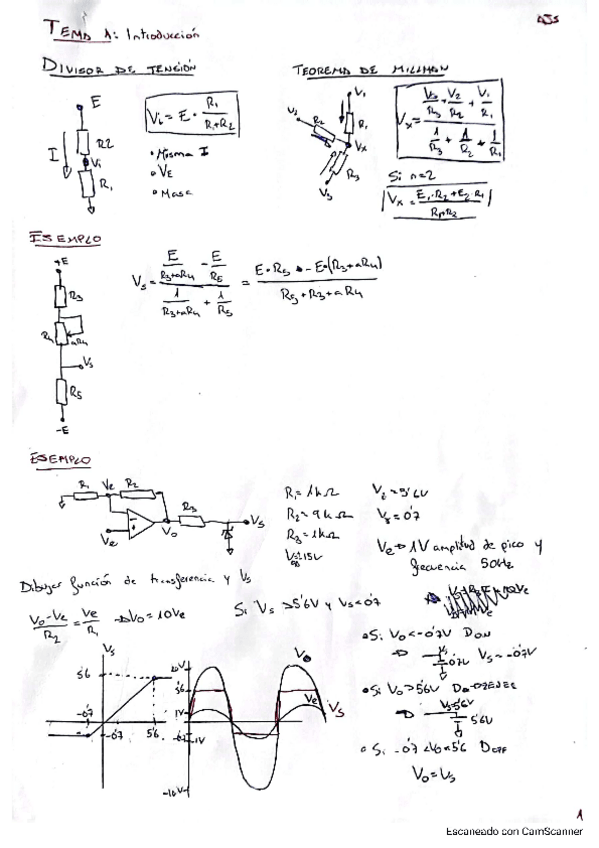 TEMA 1: Introducción
DIVISOR DE TENSIÓN
E
I
R2
Vi
R1
Vi = E · R1 / (R1+R2)
• Misma I
• VE
• Masa
TEOREMA DE MILLMAN
V1
V2
R2
R1
Vx
R3
V3
Vx = (V3/R3 + V2/R2 + V1/R1) / (1/R3 + 1/R2 + 1/R1)
Si n=2
Vx = (E1·R2+E2·R1) / (R1+R2)
EJEMPLO
+E
R3
R4
aR4
Vs
R5
-E
Vs = (E/(R3+aR4) - E/R5) / (1/(R3+aR4) + 1/R5) = (E·R5 - E·(R3+aR4)) / (R5+R3+aR4)
EJEMPLO
R1
Ve
R2
R3
Ve
Vo
Vs
R1=1kΩ
R2=9kΩ
R3=1kΩ
Vz=5'6V
Vγ=0'7
Ve→1V amplitud de pico y
frecuencia 50Hz
Dibujar función de transferencia y Vs
(Vo-Ve)/R2 = Ve/R1 → Vo=10Ve
Si Vs >5'6V y Vs<0'7
• Si Vo<-0'7V DON
0'7V Vs=-0'7V
• Si Vo>5'6V
Vs=5'6V
5'6V
• Si -0'7<Vo<5'6 DOFF
Vo=Vs
Vs
5'6
-0'7
-0'7
5'6
10V
5'6
1V
-0'7
-1V
-10V
Vo
Ve
Vs
1
Escaneado con CamScanner